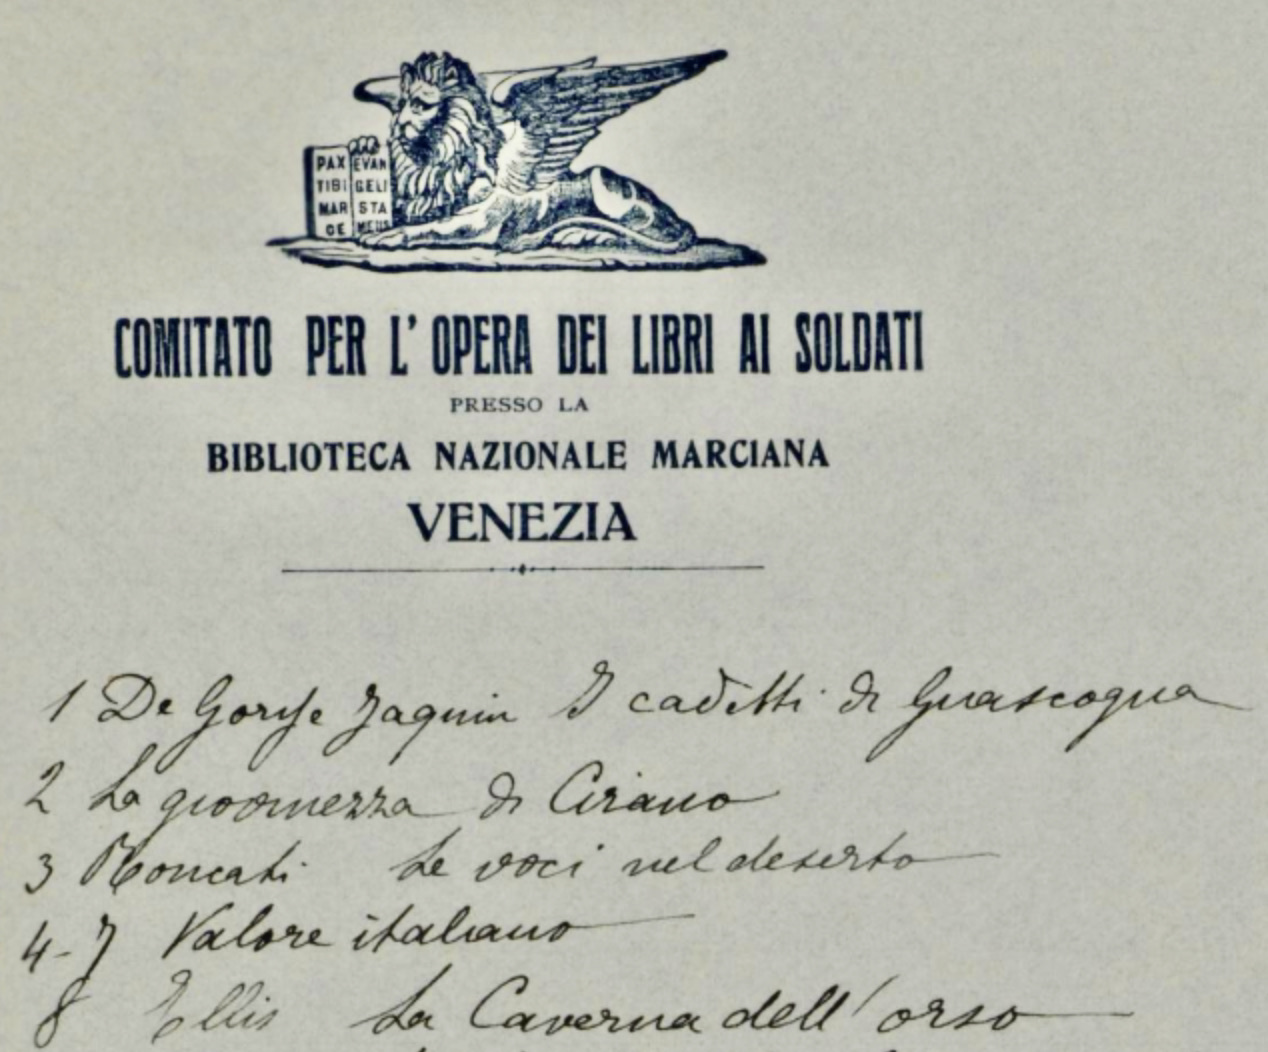 PAX EVAN
TIBI GELI
MAR STA
CE MEUS
COMITATO PER L' OPERA DEI LIBRI AI SOLDATI
PRESSO LA
BIBLIOTECA NAZIONALE MARCIANA
VENEZIA
1 De Gorsse Jaquin I cadetti di Guascogna
2 La giovinezza di Cirano
3 Roncati Le voci nel deserto
4-7 Valore italiano
8 Ellis La Caverna dell' orso